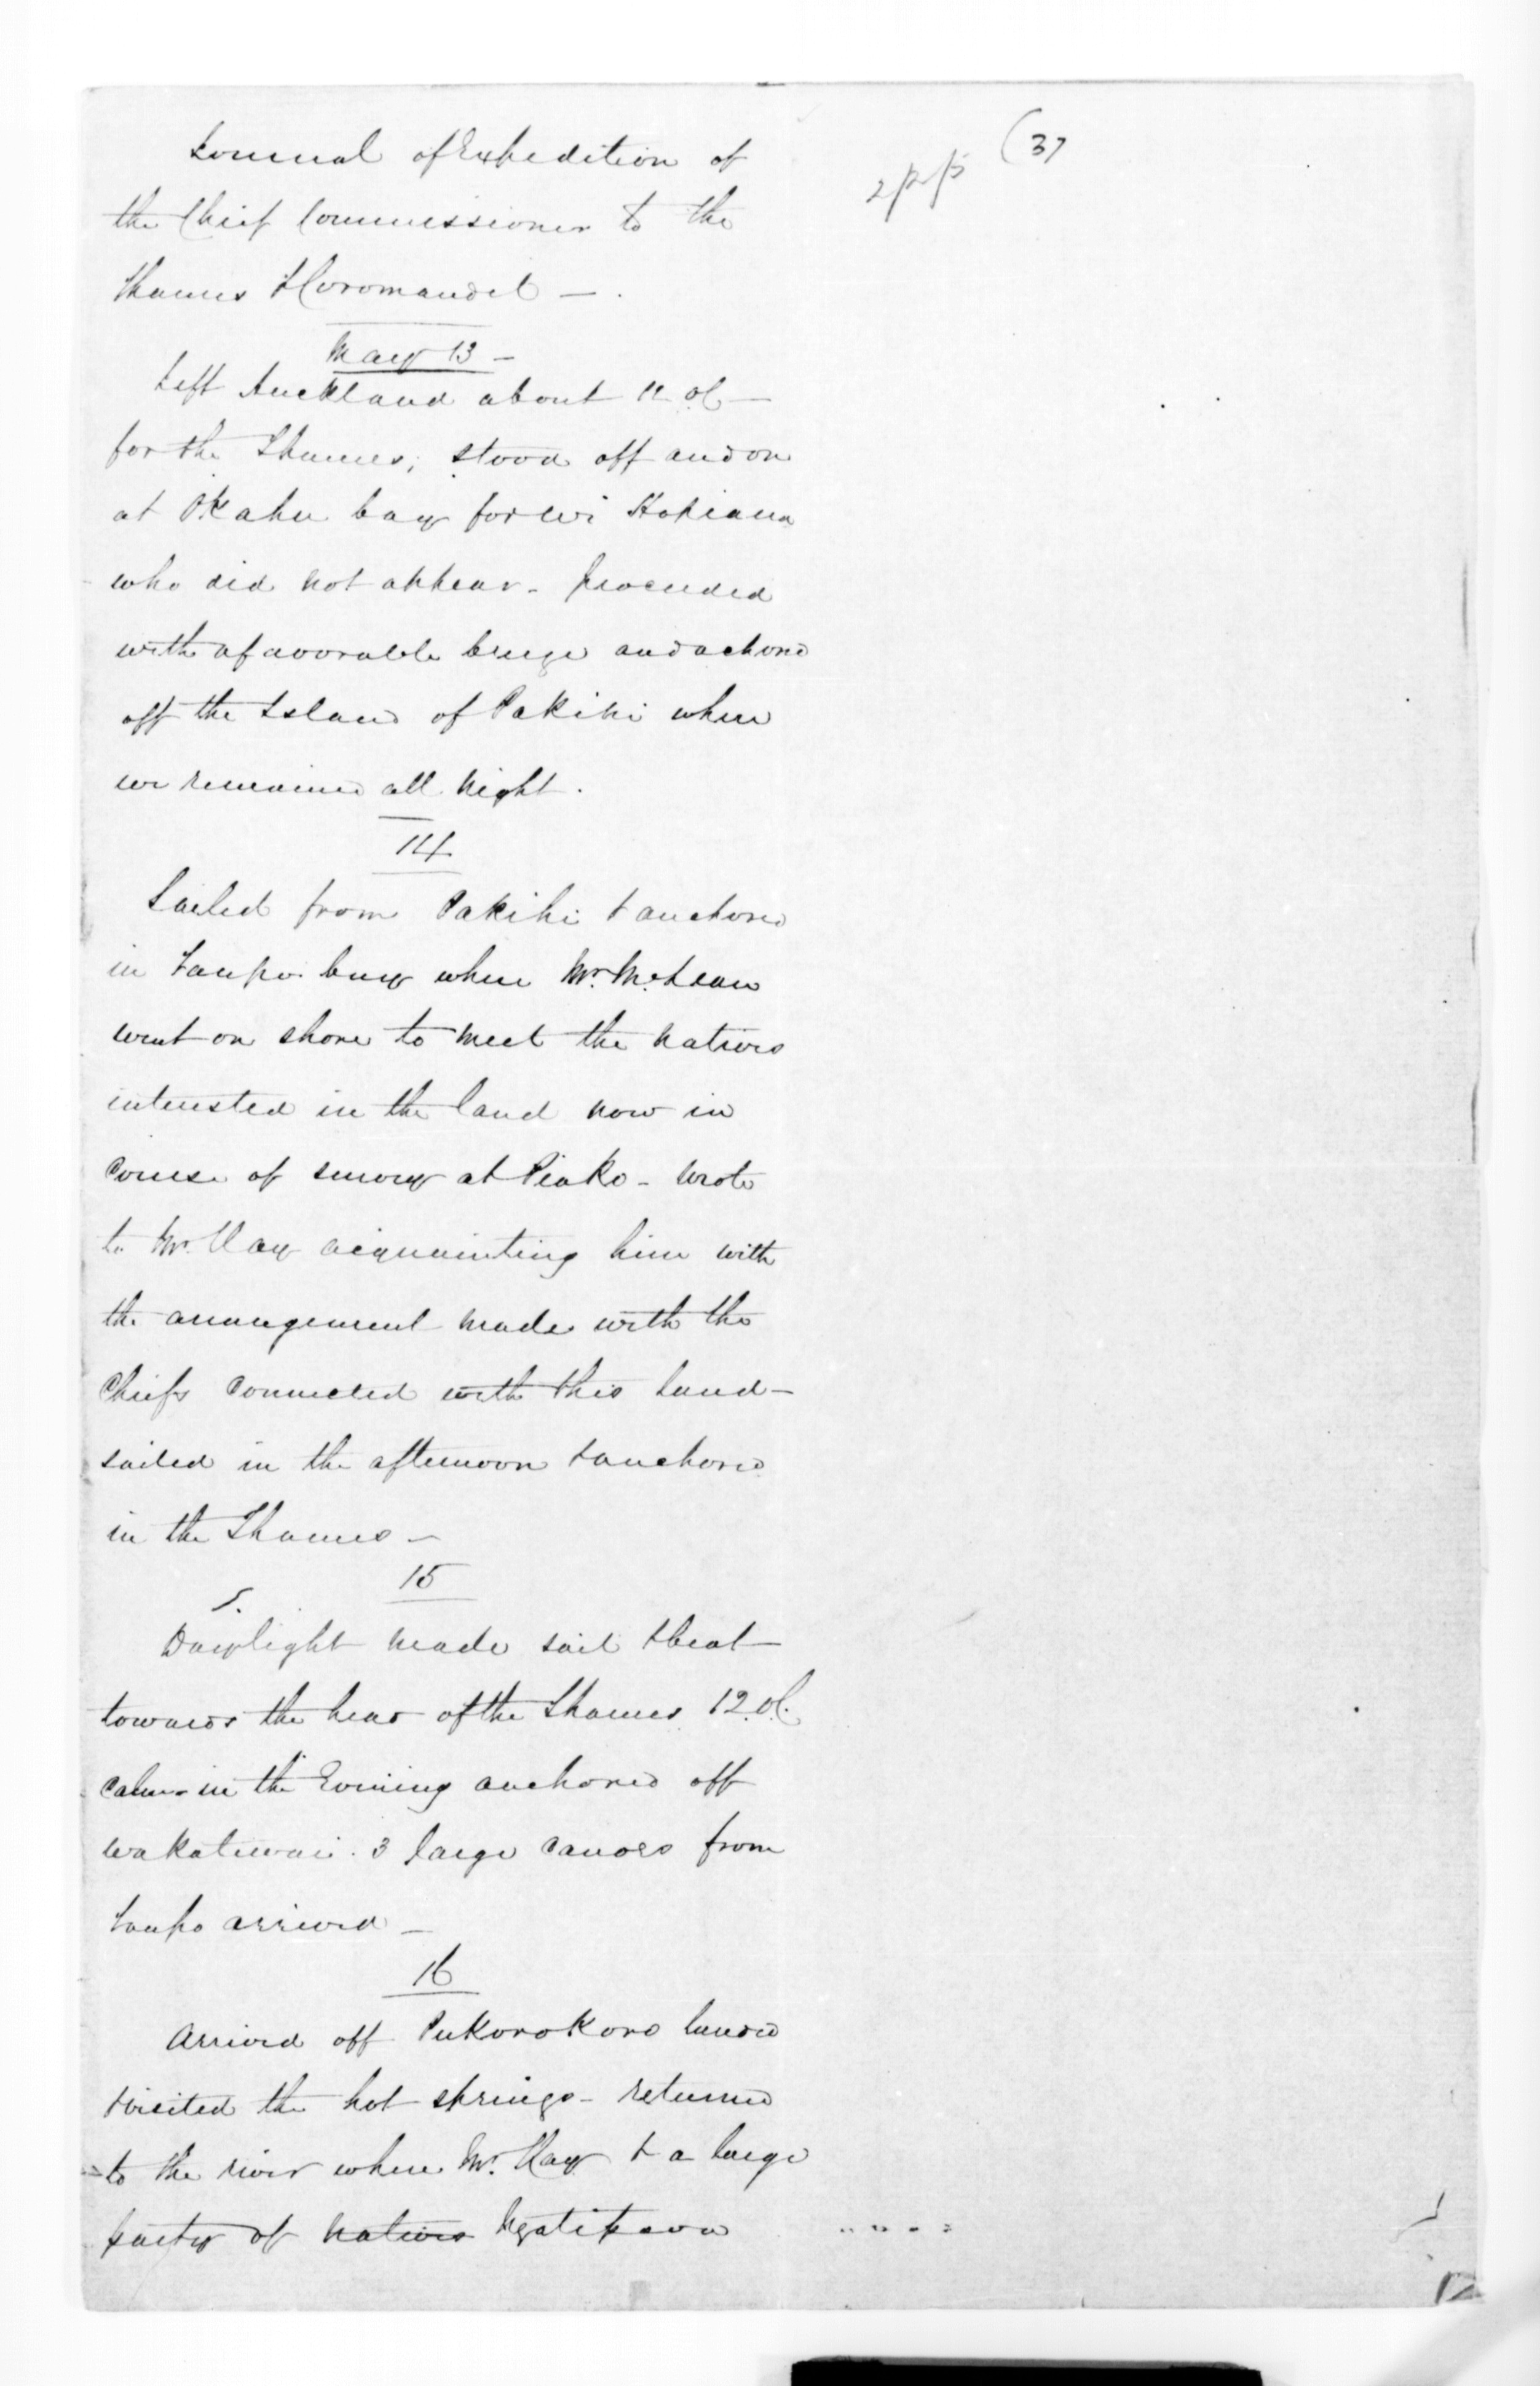 Journal of Expedition of
the Chief Commissioner to the
Thames & Coromandel —.
May 13 —
Left Auckland about 11 oC —
for the Thames; stood off and on
at Okahu bay for Wi Hopiana
who did not appear - proceeded
with a favorable breeze and achord
off the Island of Pakihi where
we remained all night.
14
Sailed from Pakihi & anchored
in Taupo bay where Mr. McLean
went on shore to meet the natives
interested in the land now in
course of survey at Piako - wrote
to Mr. Hay acquainting him with
the arrangement made with the
Chiefs connected with this land —
sailed in the afternoon & anchored
in the Thames —
15
Daylight made sail & beat
towards the head of the Thames 12.oC.
calm - in the Evening anchored off
Wakatiwai. 3 large canoes from
Taupo arrived —
16
Arrived off Pukorokoro landed
& visited the hot springs - returned
to the river where Mr. Hay & a large
party of natives Ngatipaoa
(37
2/2/5